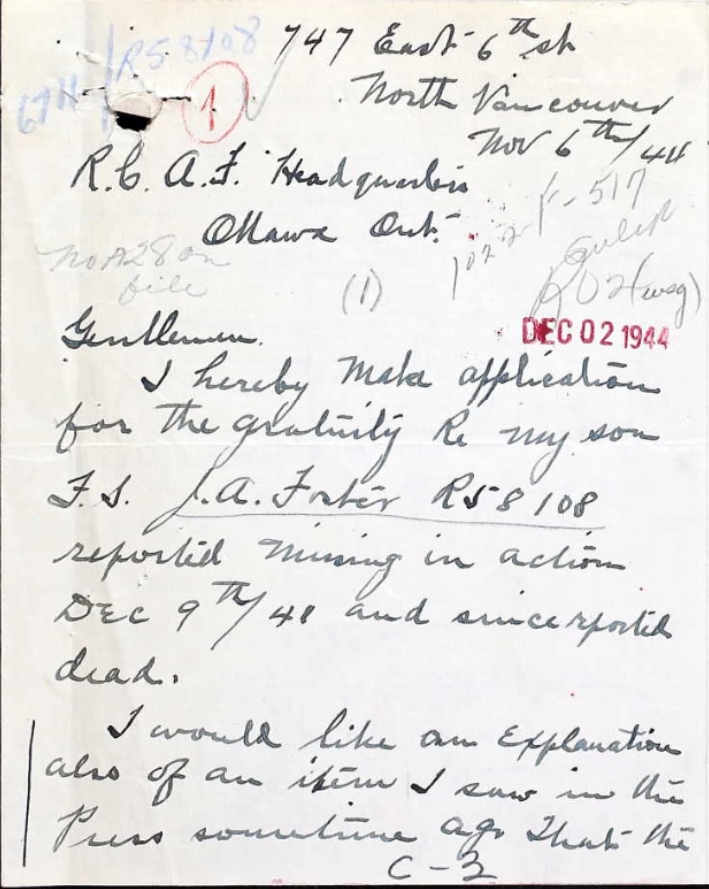 R58108
747 East 6th st
67H
1
North Vancouver
Nov 6th/44
R.C.A.F. Headquarters
F-517
Ottawa Ont.
1022-
No A28 on
file
(1)
DEC 02 1944
Gentlemen.
I hereby make application
for the gratuity Re my son
F.S. J.A. Foster R58108
reported missing in action
DEC 9th/41 and since reported
dead.
I would like an Explanation
also of an item I saw in the
Press sometime ago that the
C-2